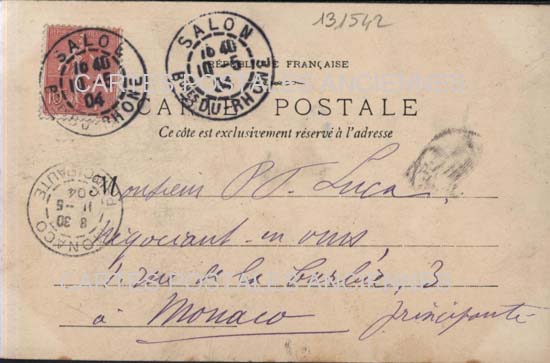 131542
SALON
16 40
10 -5
04
BCHES DU RHONE
SALON
16 40
10 -5
04
BCHES DU RHONE
RÉPUBLIQUE FRANÇAISE
CARTES POSTALES ANCIENNES
CARTE POSTALE
Ce côté est exclusivement réservé à l'adresse
MONACO
PRINCIPAUTE
8 30
11 -5
04
Monsieur Luca
négociant en vins,
rue de la 3
CARTES POSTALES ANCIENNES
à Monaco principauté